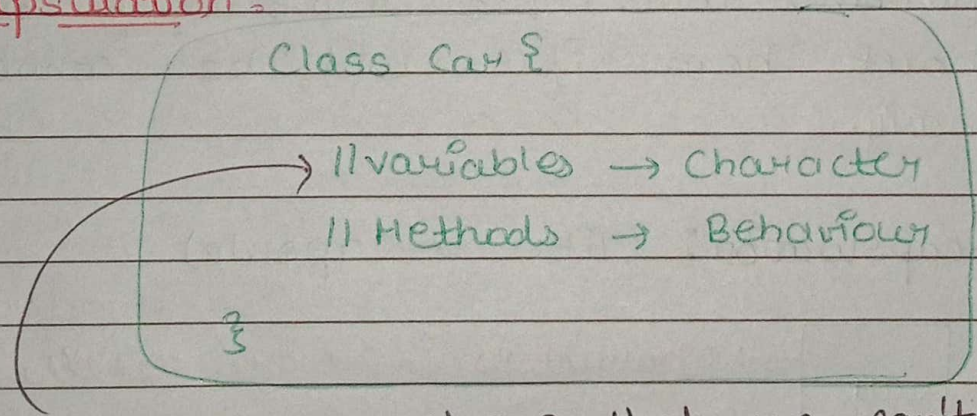 Class Car {
// variables → Character
// Methods → Behaviour
}